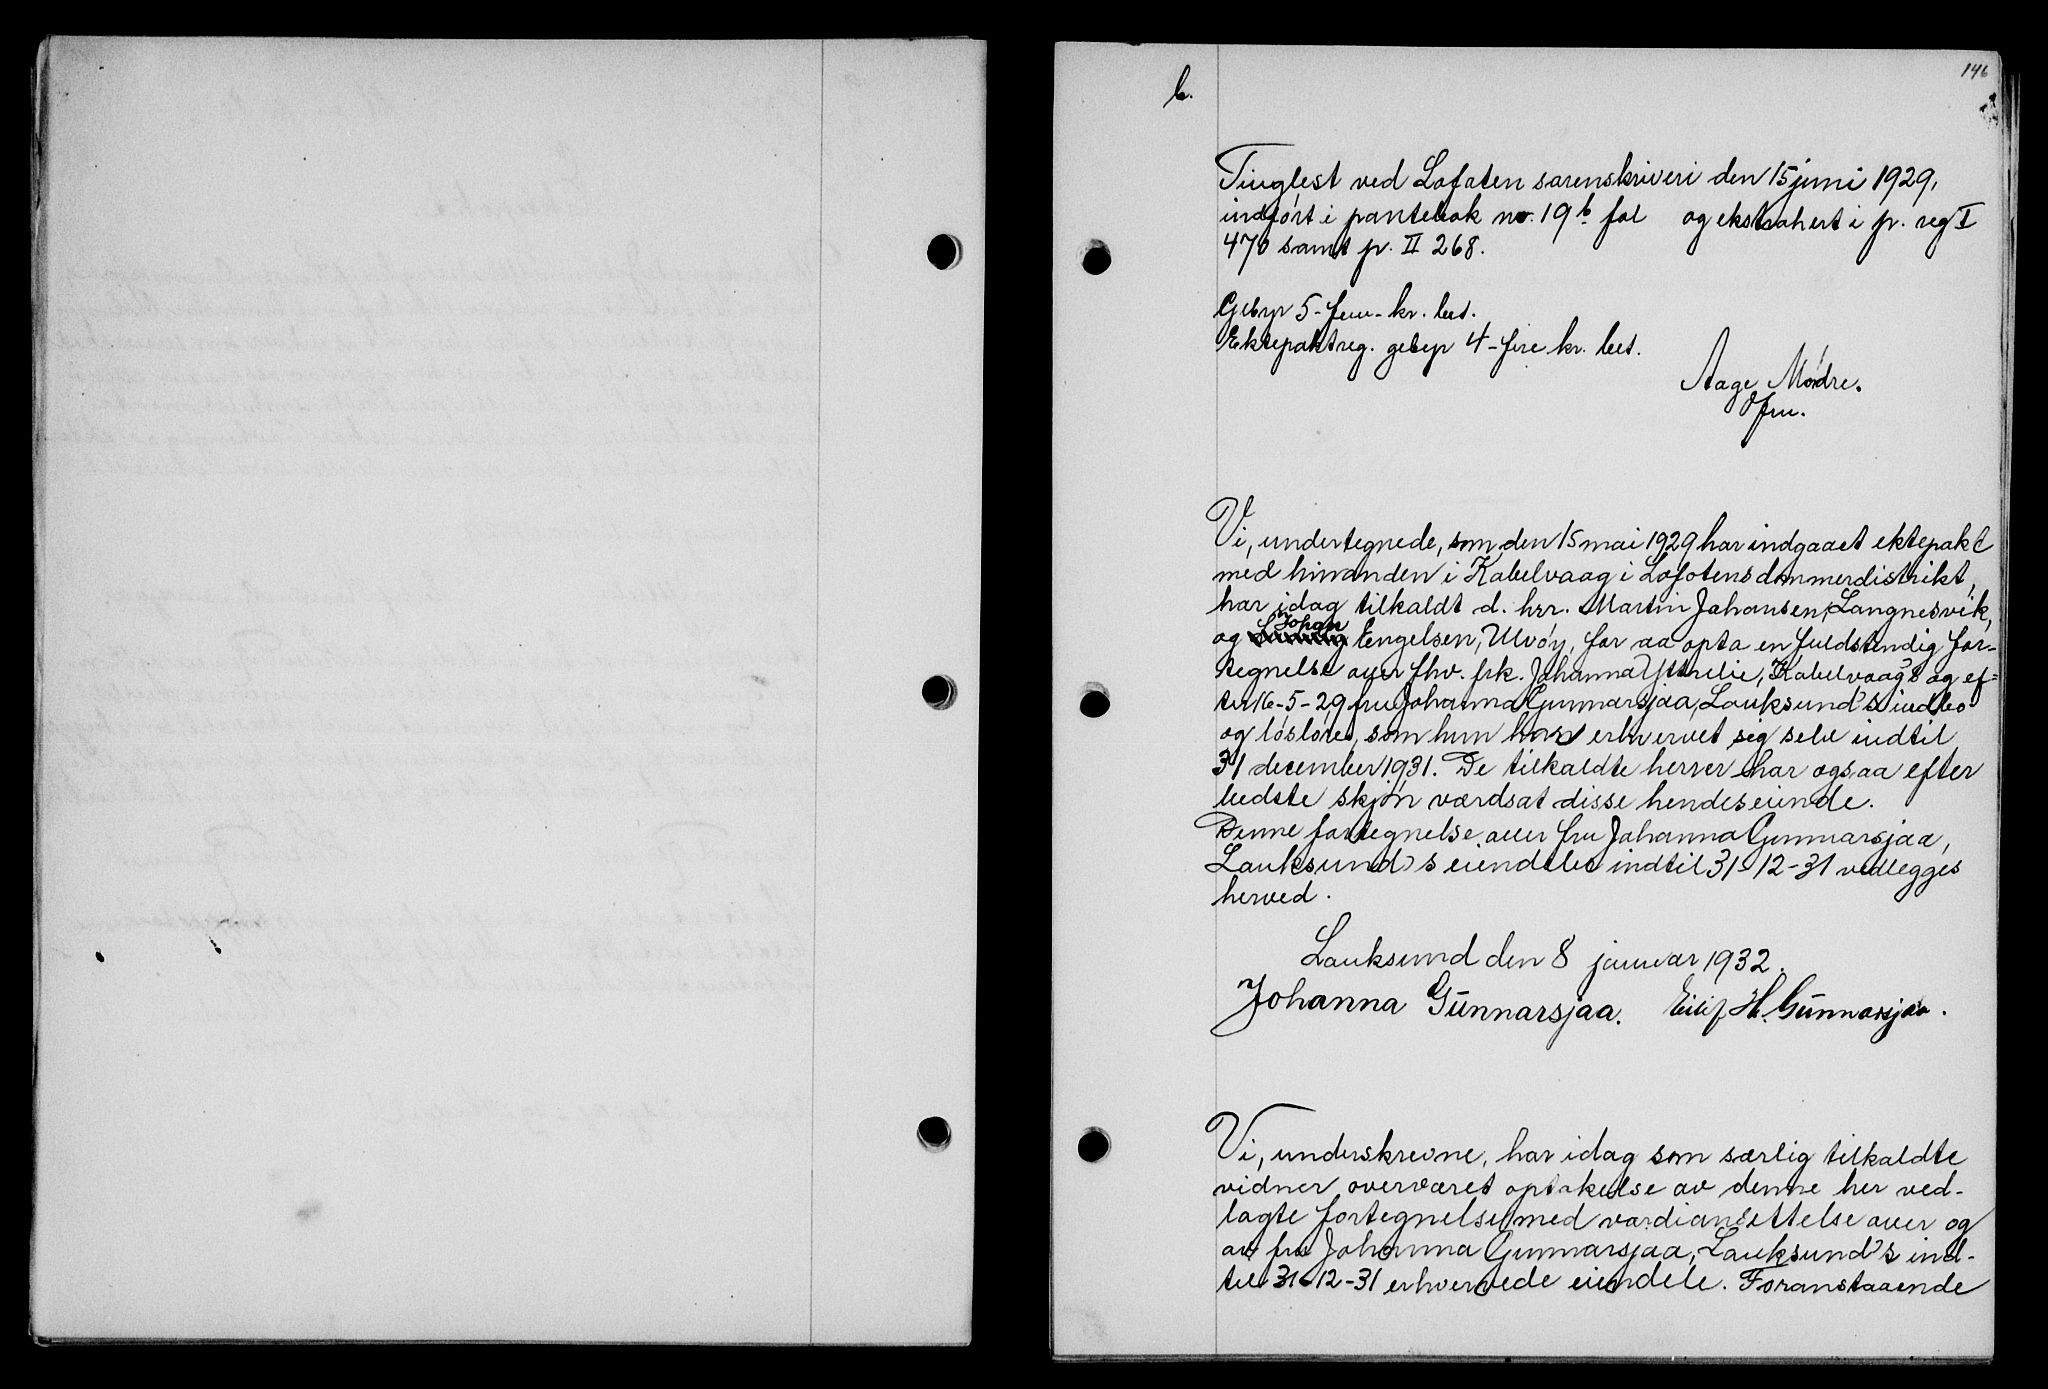 146
b.
Tinglest ved Lofoten sorenskriveri den 15 juni 1929,
indført i pantebok no. 19 b fol og ekstrahert i p. reg I
470 samt p. II 268.
Gebyr 5 - fem - kr. bet.
Ektepaktreg. gebyr 4 - fire kr. bet.
Aage Mødre.
ffm.
Vi, undertegnede, som den 15 mai 1929 har indgaaet ektepakt
med hinanden i Kabelvaag i Lofotens dommerdistrikt,
har idag tilkaldt d. herr. Martin Johansen, Langnesvik,
og Johan Engelsen, Ulvøy, for aa opta en fuldstendig for-
tegnelse over fhv. frk. Johanna Ytterlie, Kabelvaag's og ef-
ter 16-5-29 fru Johanna Gunnarsjaa, Lauksund's indbo
og løsløre, som hun har erhvervet sig selv indtil
31 december 1931. De tilkaldte herrer har ogsaa efter
bedste skjøn værdsat disse hendes eiende.
Denne fortegnelse over fru Johanna Gunnarsjaa,
Lauksund's eiendele indtil 31-12-31 vedlegges
herved.
Lauksund den 8 januar 1932.
Johanna Gunnarsjaa. Eilif H. Gunnarsjaa.
Vi, underskrevne, har idag som særlig tilkaldte
vidner overværet optakelse av denne her ved-
lagte fortegnelse med værdiansettelse over og
av fru Johanna Gunnarsjaa, Lauksund's ind-
til 31-12-31 erhvervede eiendele. Foranstaaende